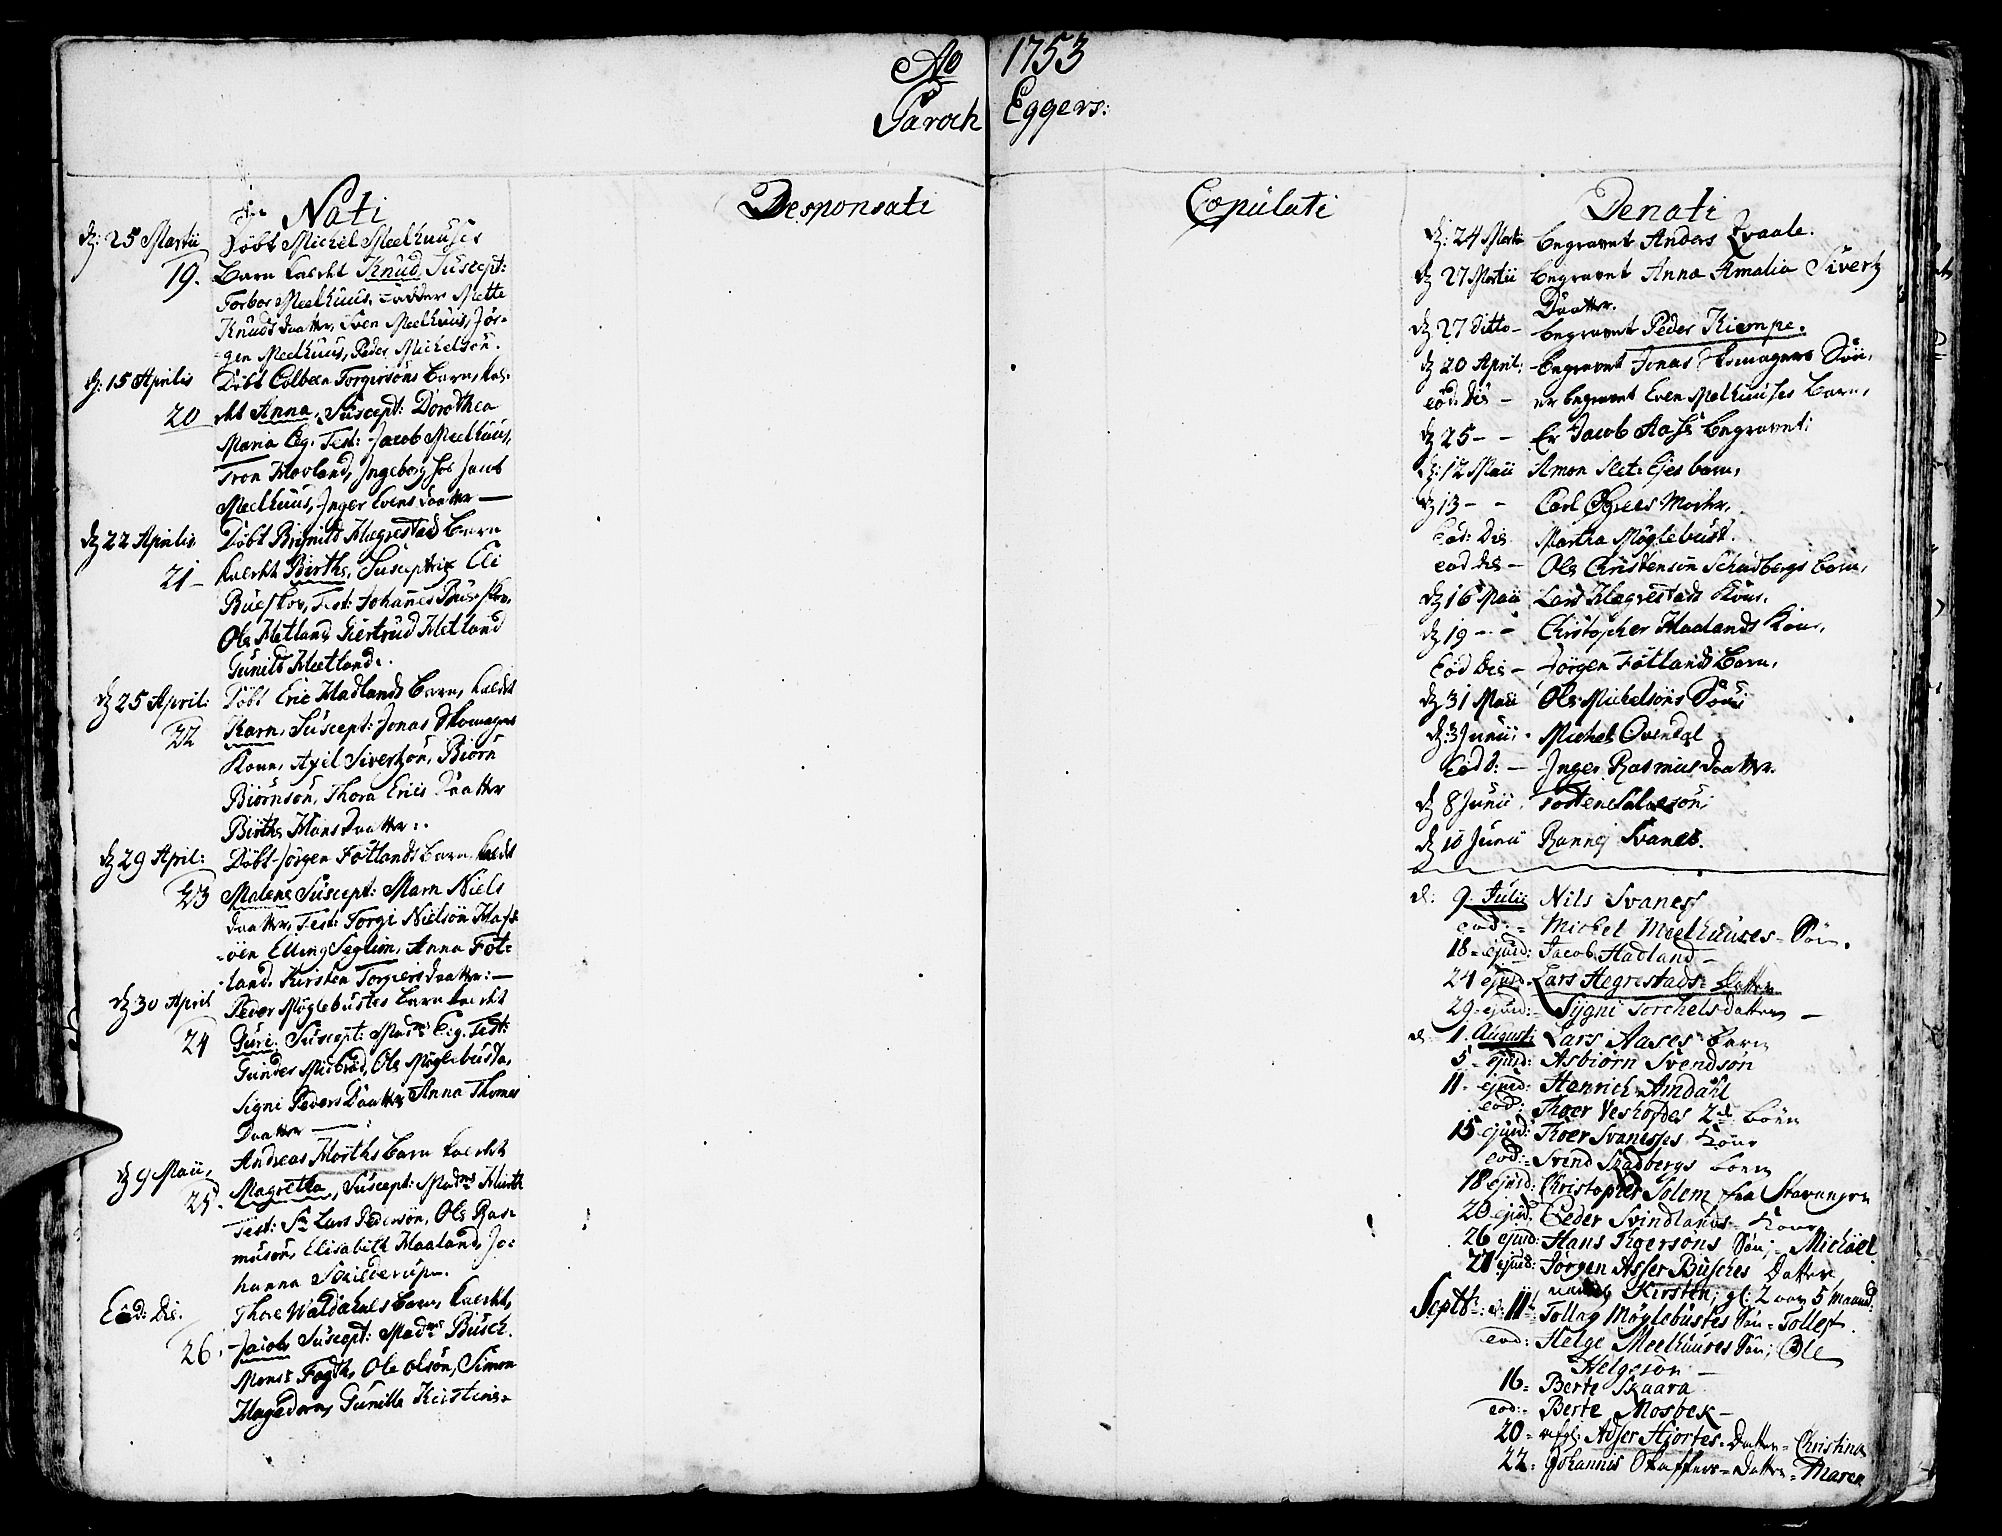 Ao 1753
Paroch Eggers:
Nati
d: 25 Martii Döbt Michel Meelhuuses
19. Barn kaldt Knud, Suscept:
Torbor Meelhuus, Fadder Mette
Knuds daatter, Sven Meelhuus, Jör-
gen Meelhuus, Peder Michelsön.
d: 15 Aprilis Döbt Colbeen Torgiersöns Barn, kal-
20 dt Anna, Suscept: Dorothea
Maria Eg. Test: Jacob Meelhuus,
Tron Hovland, Ingeborg hos Jacob
Meelhuus, Inger Evens daatter —
d 22 Aprilis Döbt Brynild Hegrestad Barn
21 — kaldt Birthe, Susceptrix Eli
Bueskov, Test: Johannes Bueskov,
Ole Hetland, Giertrud Hetland
Gunild Hetland.
d 25 April: Döbt Eric Hadlands Barn, kaldt
22 Karn, Suscept: Jonas Skomagers
Kone, Axil Sivertzön, Biörn
Biörnsön, Thora Erics Daatter
Birthe Hans daatter.
d 29 April: Döbt Jörgen Fötlands Barn, kaldt
23 Malene Suscept: Marn Niels
daatter, Test: Torgi Nielsön Haf-
öen Elling Seglem, Anna Föt-
land. Kirsten Torgiers daatter: —
d 30 April Peder Möglebustes Barn kaldt
24 Guri. Suscept: Mad. Eeg. Test:
Gunder Midbröd, Ole Möglebust,
Signi Peders Daatter Anna Thomes
Daatter —
d 9 Maii, Andreas Hiorths Barn kaldt
25. Magretha, Suscept: Mad. Hiorth
Test: Sr Lars Pedersön, Ole Ras-
musön, Elisabeth Haaland, Jo-
hanna Schilderup.
Eod: Die. Thore Waldahls Barn, kaldt,
26. Jacob Suscept: Mad. Busch.
Mons: Fogth, Ole Olsön, Simon
Hagedorn, Gunille Kirstine.
Desponsati
Copulati
Denati
d: 24 Martii begravet Anders Qvaale.
d 27 Martii begravet Anna Amalia Sivertz
Daatter.
d 27 Ditto — begravet Peder Kiempe.
d 20 April: begravet Jonas Skomagers Sön,
eod: Die — er begravet Even Melhuuses Barn,
d 25 — — Er Jacob Aase begravet:
d: 12 Maii Amon Slet-Ejes barn,
d 13 — — Carl Moder,
Eod: Die Martha Möglebust.
eod Die — Ole Christensön Schadbergs Barn,
d 16 Maii Lars Hegrestads Kone.
d 19 — — Christopher Haalands Kone,
Eod Die — Jörgen Fötlands Barn,
d 31 Maii Ole Michelsöns Sön
d: 3 Junii, Michel Qvendal
Eod: — Inger Rasmus daatter.
d 8 Junii, Tosten Salvesön,
d 10 Junii Rannej Svanes.
d: 9 Julii Nils Svaness
eod: Michel Meelhuuses Sön.
18 ejusd: Jacob Hadland —
24 ejusd. Lars Hegrestads Datter
29 ejusd: Sygni Torchels datter —
d. 1. August: Lars Aases barn
5 ejusd: Asbiörn Svendsön
11 ejusd: Henrich Amdahl
eod: Thoer Veshofdes 2de börn
15 ejusd: Thoer Svanesses Kone
eod: Svend Skadbergs barn
18 ejusd: Christopher Solem fra Stavanger
20 ejusd. Peder Svindlands Kone
26 ejusd: Hans Thoersöns Sön; Michäel
27 ejusd: Jörgen Asser Büsches Datter
navnlig Kirsten; gl: 2 aar 5 maaned.
Septbr: d. 11te Tollag Möglebustes Sön Tollef.
eod: Helge Meelhuuses Sön; Ole
Helgesön —
16 Berte Skaara
eod: Berte Mosbek —
20 Adser Hjortes Datter Christina
22 Johannis Datter Maren